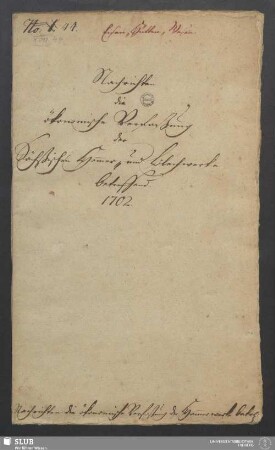 No. 1. 44.
Nachrichten
die
ökonomische Verfassung
der
Sächsischen Hammer- und Blechwerke
betreffend
1702.
Nachrichten die ökonomische Verfassung der Hammerwerke betref.
SLUB
Wir führen Wissen.